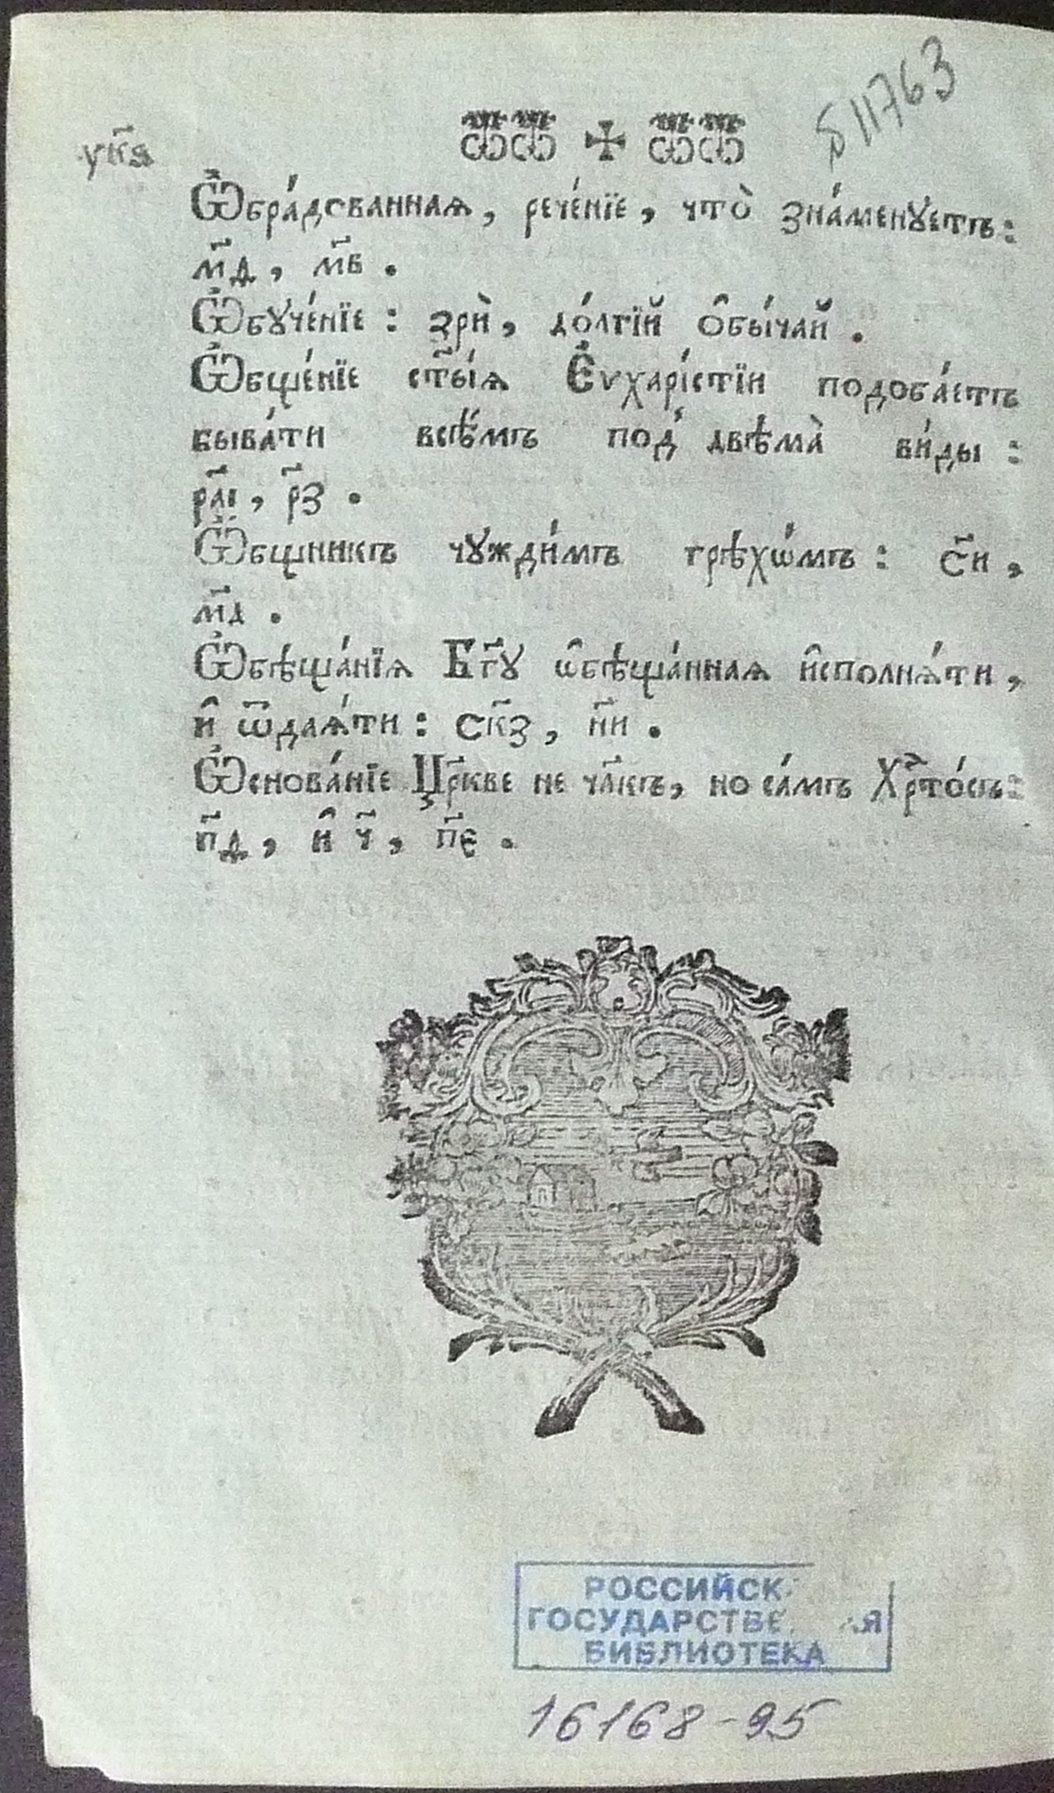 Б 11763
Ѡ҆бра́дованнаѧ, рече́нїе, что̀ зна́менꙋетъ:
м҃д, м҃в.
Ѡ҆бꙋче́нїе: зрѝ, до́лгїй ѻ҆бы́чай.
Ѡ҆бще́нїе ст҃ы́ѧ Е҆ѵхарі́стїи подоба́етъ
быва́ти всѣ̑мъ под̾ двѣма̀ ви́ды:
р҃аі, р҃з.
Ѡ҆́бщникъ чꙋжди́мъ грѣхѡ́мъ: с҃и,
м҃д.
Ѡ҆бѣща́нїѧ Бг҃ꙋ ѡ҆бѣща́ннаѧ и҆сполнѧ́ти,
и҆ ѿдаѧ́ти: ск҃з, н҃и.
Ѡ҆снова́нїе Цр҃кве не чл҃къ, но са́мъ Хрⷭ҇то́съ:
п҃д, и҆ ч҃, п҃є.
РОССИЙСК
ГОСУДАРСТВЕ АЯ
БИБЛИОТЕКА
16168-95